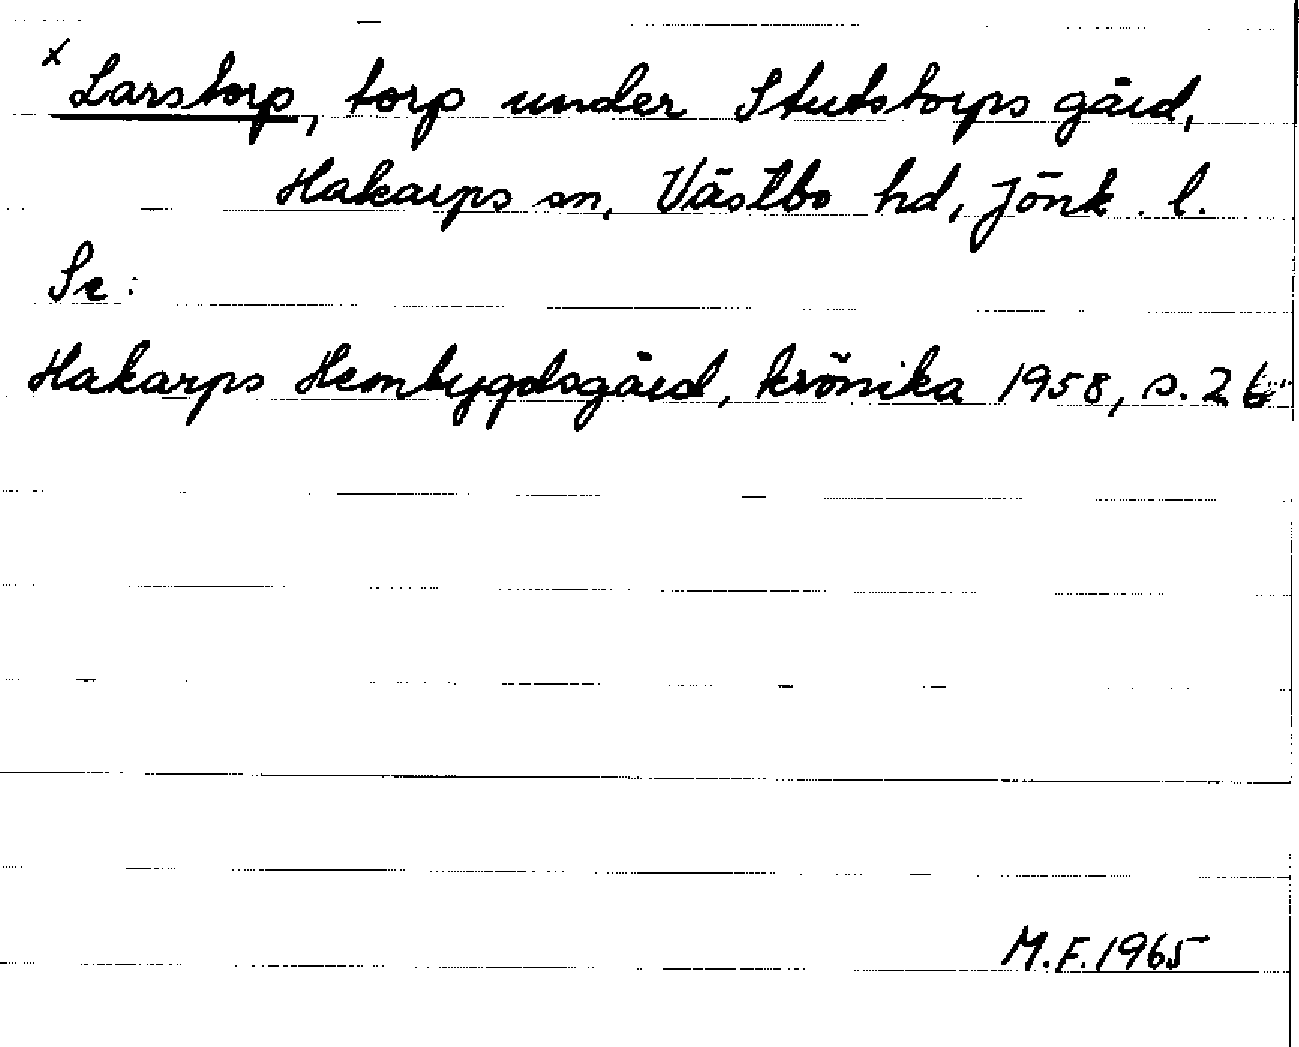 x Larstorp, torp under Stutstorps gård,
Hakarps sn, Västbo hd, Jönk. l.
Se:
Hakarps Hembygdsgård, krönika 1958, s. 26
M.F. 1965